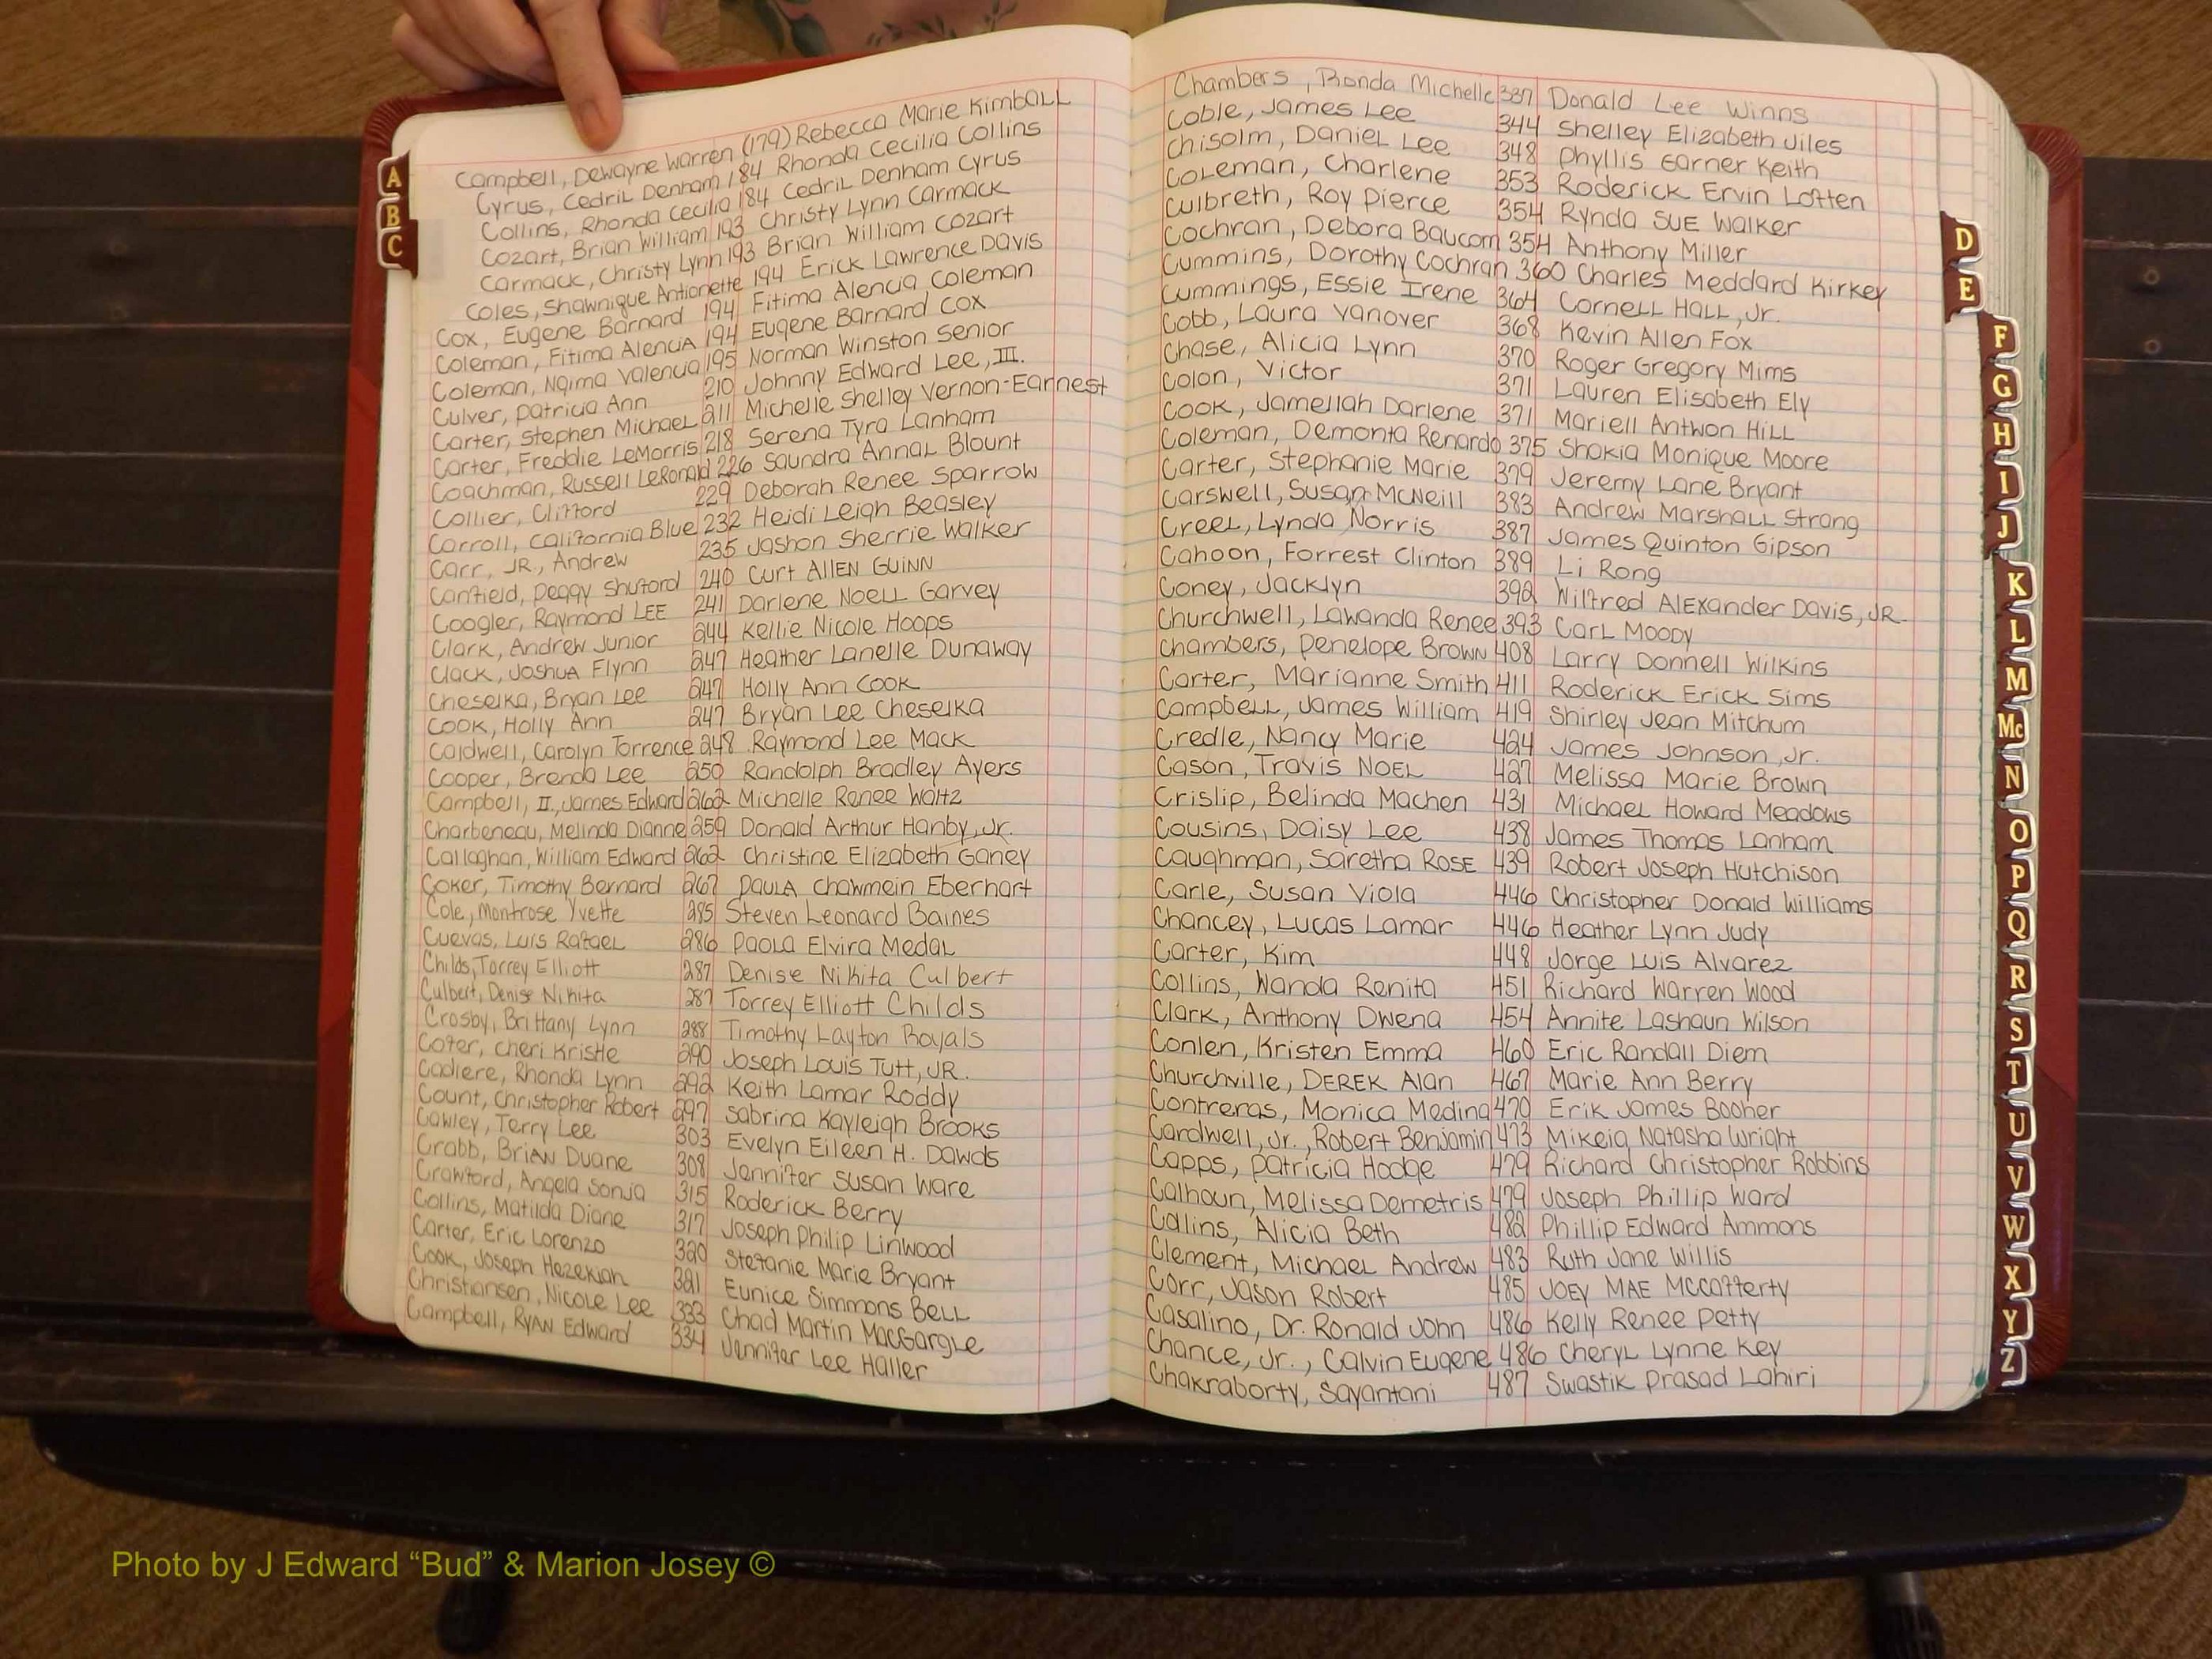 Campbell, Dewayne Warren (179) Rebecca Marie Kimball
Cyrus, Cedril Denham 184 Rhonda Cecilia Collins
Collins, Rhonda Cecilia 184 Cedril Denham Cyrus
Cozart, Brian William 193 Christy Lynn Carmack
Carmack, Christy Lynn 193 Brian William Cozart
Coles, Shawnique Antionette 194 Erick Lawrence Davis
Cox, Eugene Barnard 194 Fitima Alencia Coleman
Coleman, Fitima Alencia 194 Eugene Barnard Cox
Coleman, Naima Valencia 195 Norman Winston Senior
Culver, Patricia Ann 210 Johnny Edward Lee, III.
Carter, Stephen Michael 211 Michelle Shelley Vernon-Earnest
Carter, Freddie LeMorris 218 Serena Tyra Lanham
Coachman, Russell LeRonald 226 Saundra Annal Blount
Collier, Clifford 229 Deborah Renee Sparrow
Carroll, California Blue 232 Heidi Leigh Beasley
Carr, JR., Andrew 235 Jashon Sherrie Walker
Canfield, Peggy Shuford 240 Curt Allen Guinn
Coogler, Raymond Lee 241 Darlene Noell Garvey
Clark, Andrew Junior 244 Kellie Nicole Hoops
Clack, Joshua Flynn 247 Heather Lanelle Dunaway
Cheselka, Bryan Lee 247 Holly Ann Cook
Cook, Holly Ann 247 Bryan Lee Cheselka
Caldwell, Carolyn Torrence 248 Raymond Lee Mack
Cooper, Brenda Lee 250 Randolph Bradley Ayers
Campbell, II., James Edward 262 Michelle Renee Waltz
Charbeneau, Melinda Dianne 259 Donald Arthur Hanby, Jr.
Callaghan, William Edward 262 Christine Elizabeth Ganey
Coker, Timothy Bernard 267 Paula Chowmein Eberhart
Cole, Montrose Yvette 285 Steven Leonard Baines
Cuevas, Luis Rafael 286 Paola Elvira Medal
Childs, Torrey Elliott 287 Denise Nikita Culbert
Culbert, Denise Nikita 287 Torrey Elliott Childs
Crosby, Brittany Lynn 288 Timothy Layton Royals
Cofer, Cheri Kristie 290 Joseph Louis Tutt, JR.
Cadiere, Rhonda Lynn 292 Keith Lamar Roddy
Count, Christopher Robert 297 Sabrina Kayleigh Brooks
Cawley, Terry Lee 303 Evelyn Eileen H. Dawds
Crabb, Brian Duane 308 Jennifer Susan Ware
Crawford, Angela Sonja 315 Roderick Berry
Collins, Matilda Diane 317 Joseph Philip Linwood
Carter, Eric Lorenzo 320 Stefanie Marie Bryant
Cook, Joseph Hezekiah 321 Eunice Simmons Bell
Christiansen, Nicole Lee 333 Chad Martin MacGargle
Campbell, Ryan Edward 334 Jennifer Lee Haller
Chambers, Rhonda Michelle 337 Donald Lee Winns
Coble, James Lee 344 Shelley Elizabeth Jiles
Chisolm, Daniel Lee 348 Phyllis Garner Keith
Coleman, Charlene 353 Roderick Ervin Lotten
Culbreth, Roy Pierce 354 Rynda Sue Walker
Cochran, Debora Baucom 354 Anthony Miller
Cummins, Dorothy Cochran 360 Charles Meddard Kirkey
Cummings, Essie Irene 364 Cornell Hall, Jr.
Cobb, Laura Vanover 368 Kevin Allen Fox
Chase, Alicia Lynn 370 Roger Gregory Mims
Colon, Victor 371 Lauren Elisabeth Ely
Cook, Jamellah Darlene 371 Mariell Antwon Hill
Coleman, Demonta Renardo 375 Shakia Monique Moore
Carter, Stephanie Marie 379 Jeremy Lane Bryant
Carswell, Susan McNeill 383 Andrew Marshall Strong
Creel, Lynda Norris 387 James Quinton Gipson
Cahoon, Forrest Clinton 389 Li Rong
Coney, Jacklyn 392 Wilfred Alexander Davis, JR.
Churchwell, Lawanda Renee 393 Carl Moody
Chambers, Penelope Brown 408 Larry Donnell Wilkins
Carter, Marianne Smith 411 Roderick Erick Sims
Campbell, James William 419 Shirley Jean Mitchum
Credle, Nancy Marie 424 James Johnson, Jr.
Cason, Travis Noel 427 Melissa Marie Brown
Crislip, Belinda Machen 431 Michael Howard Meadows
Cousins, Daisy Lee 438 James Thomas Lanham
Caughman, Saretha Rose 439 Robert Joseph Hutchison
Carle, Susan Viola 446 Christopher Donald Williams
Chancey, Lucas Lamar 446 Heather Lynn Judy
Carter, Kim 448 Jorge Luis Alvarez
Collins, Wanda Renita 451 Richard Warren Wood
Clark, Anthony Dwena 454 Annite Lashaun Wilson
Conlen, Kristen Emma 460 Eric Randall Diem
Churchville, Derek Alan 467 Marie Ann Berry
Contreras, Monica Medina 470 Erik James Booher
Cardwell, Jr., Robert Benjamin 473 Mikeia Natasha Wright
Capps, Patricia Hodge 479 Richard Christopher Robbins
Calhoun, Melissa Demetris 479 Joseph Phillip Ward
Calins, Alicia Beth 482 Phillip Edward Ammons
Clement, Michael Andrew 483 Ruth Jane Willis
Corr, Jason Robert 485 Joey Mae McCafferty
Casalino, Dr. Ronald John 486 Kelly Renee Petty
Chance, Jr., Calvin Eugene 486 Cheryl Lynne Key
Chakraborty, Sayantani 487 Swastik Prasad Lahiri
A
B
C
D
E
F
G
H
I
J
K
L
M
Mc
N
O
P
Q
R
S
T
U
V
W
X
Y
Z
Photo by J Edward “Bud” & Marion Josey ©